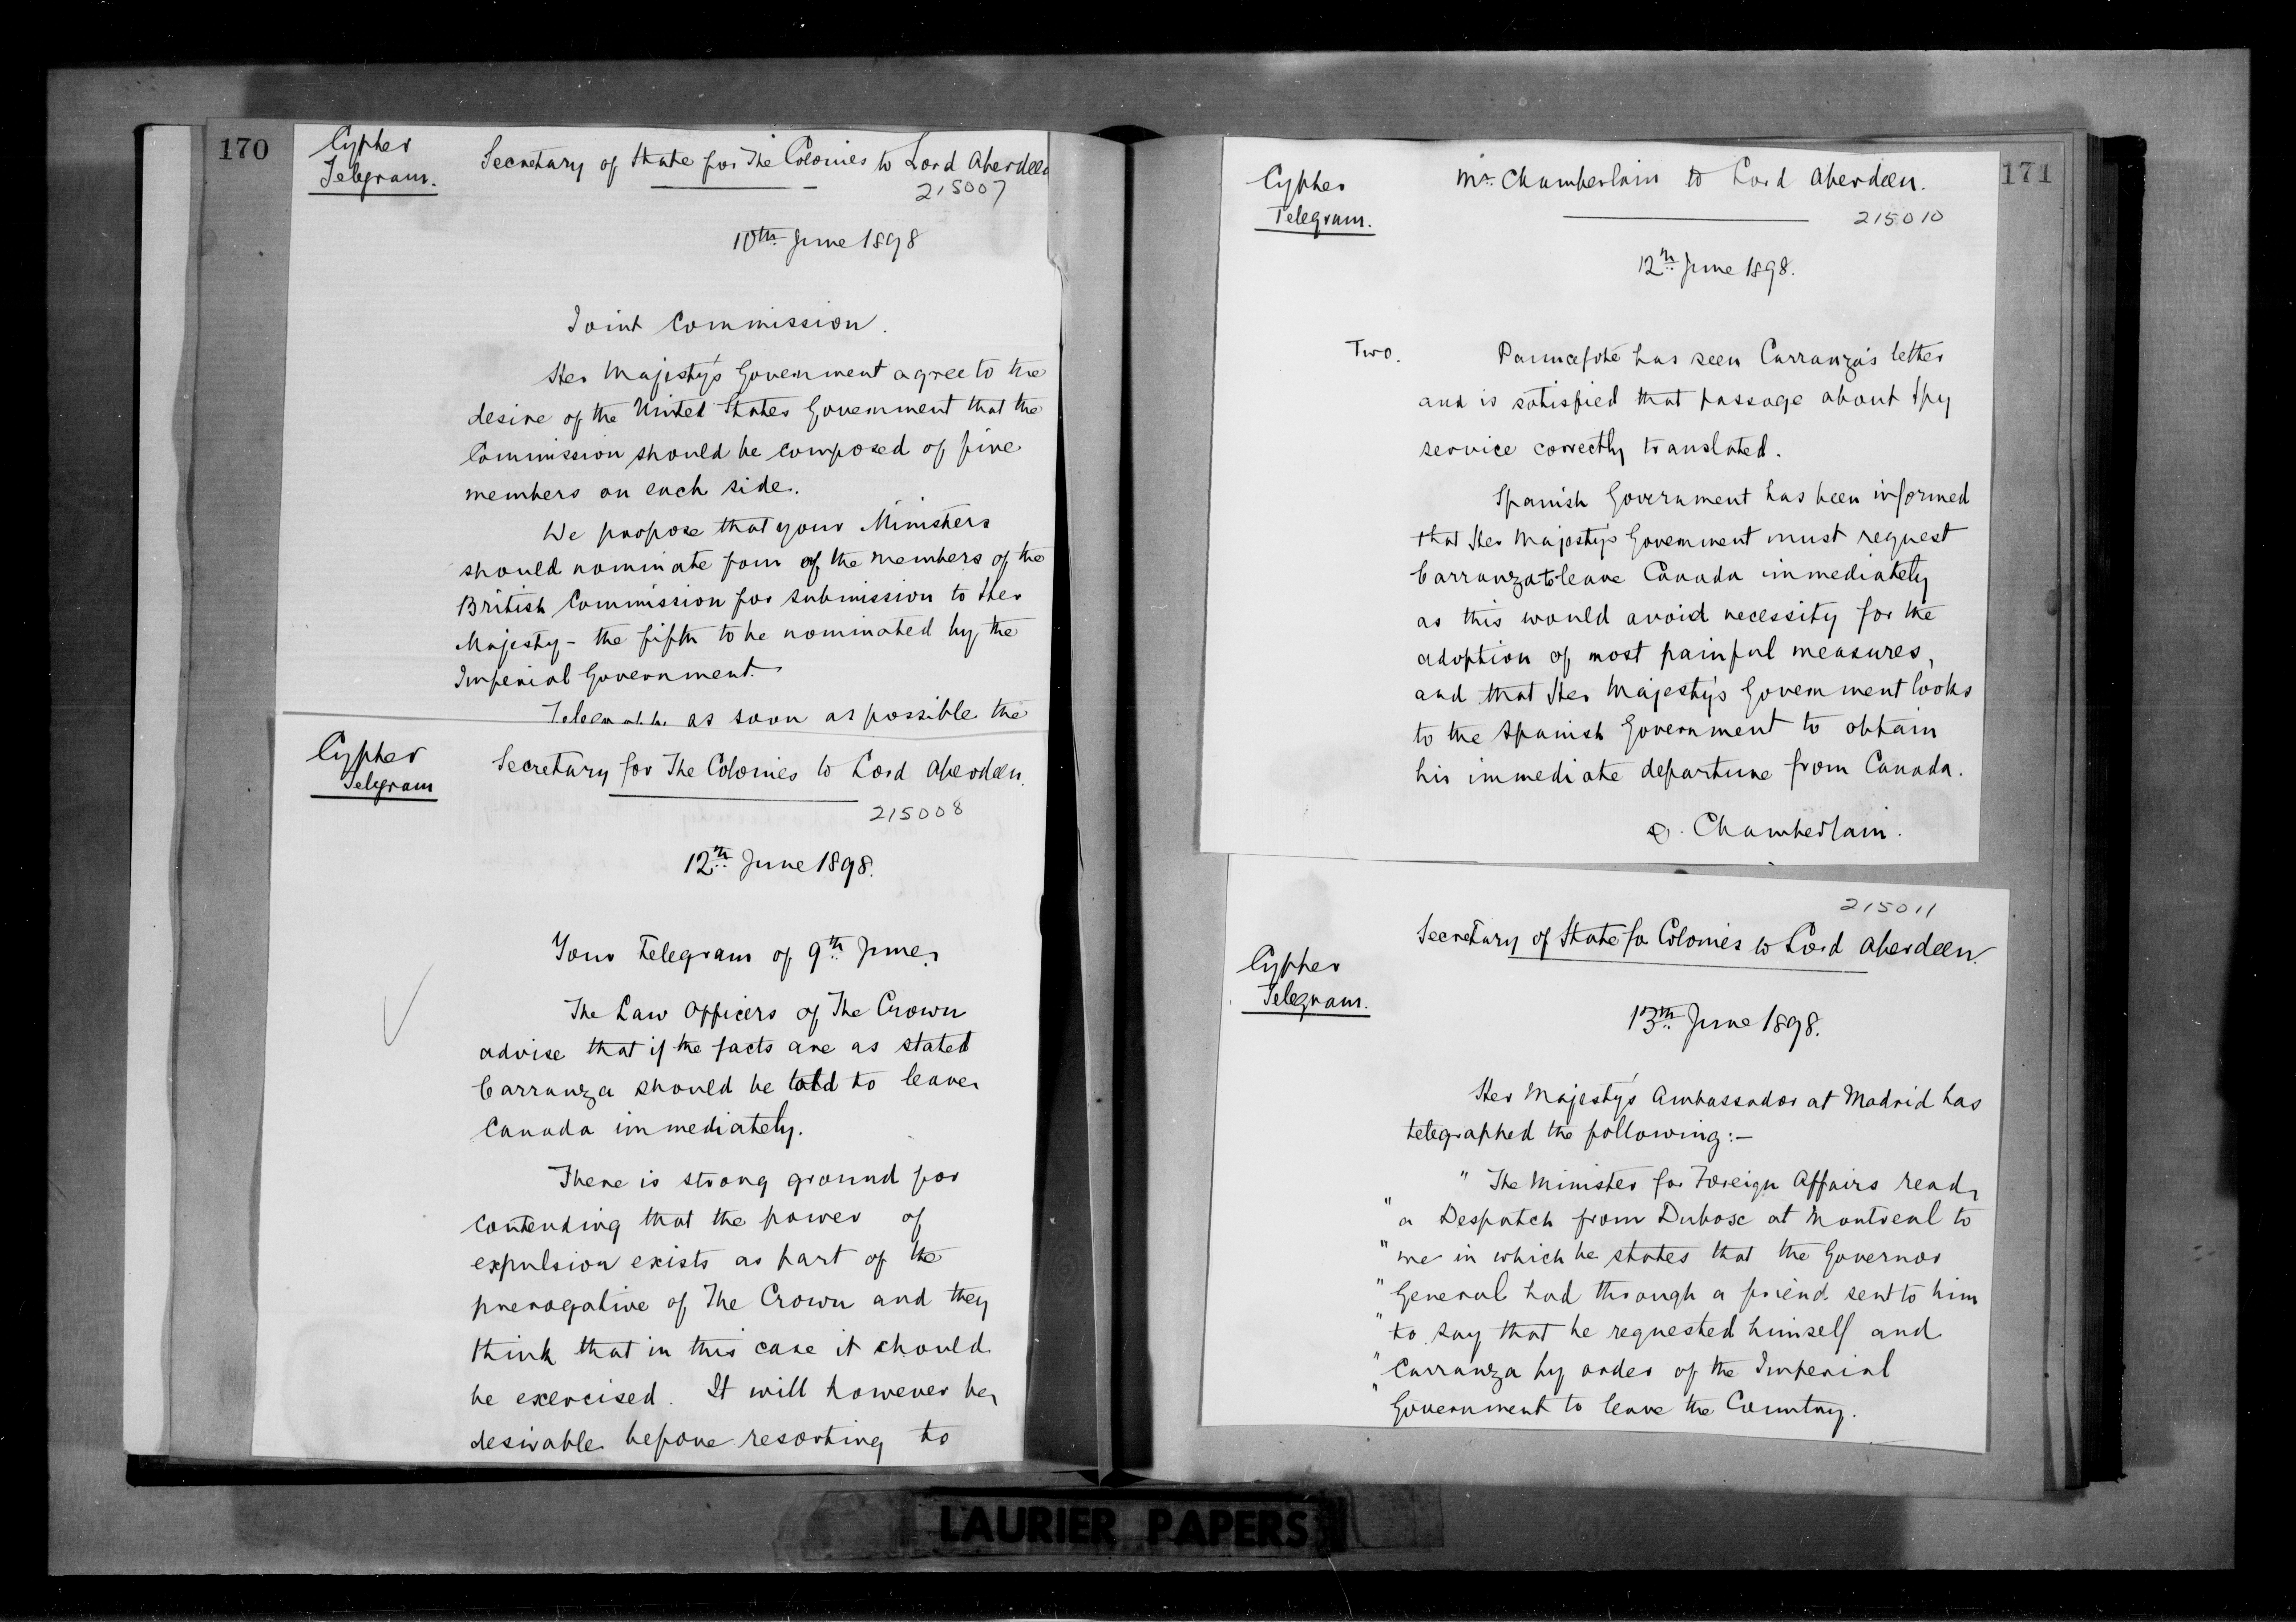 170
Cypher
Telegram.
Secretary of State for The Colonies to Lord Aberdeen
215007
10th June 1898
Joint Commission.
Her Majesty's Government agree to the
desire of the United States Government that the
Commission should be composed of five
members on each side.
We propose that your Ministers
should nominate four of the members of the
British Commission for submission to Her
Majesty - the fifth to be nominated by the
Imperial Government.
as soon as possible the
Cypher
Telegram
Secretary for The Colonies to Lord Aberdeen.
215008
12th June 1898.
Your Telegram of 9th June.
The Law Officers of The Crown
advise that if the facts are as stated
Carranza should be told to leave
Canada immediately.
There is strong ground for
contending that the power of
expulsion exists as part of the
prerogative of The Crown and they
think that in this case it should
be exercised. It will however be
desirable before resorting to
171
Cypher
Telegram.
Mr. Chamberlain to Lord Aberdeen.
215010
12th June 1898.
Two.
Pauncefote has seen Carranza's letter
and is satisfied that passage about Spy
service correctly translated.
Spanish Government has been informed
that Her Majesty's Government must request
Carranza to leave Canada immediately
as this would avoid necessity for the
adoption of most painful measures,
and that Her Majesty's Government looks
to the Spanish Government to obtain
his immediate departure from Canada.
Chamberlain.
215011
Secretary of State for Colonies to Lord Aberdeen.
Cypher
Telegram.
13th June 1898.
Her Majesty's Ambassador at Madrid has
telegraphed the following:-
" The Minister for Foreign Affairs read
" a Despatch from Dubosc at Montreal to
" me in which he states that the Governor
" General had through a friend sent to him
" to say that he requested himself and
" Carranza by order of the Imperial
" Government to leave the Country.
LAURIER PAPERS